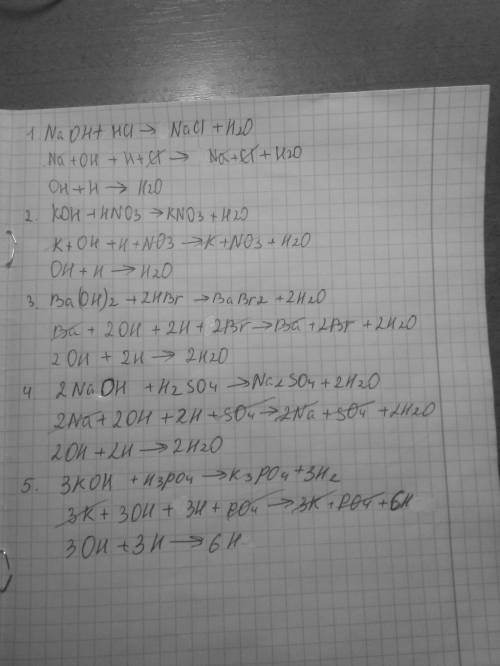 1. NaOH + HCl → NaCl + H2O
Na + OH + H + Cl → Na + Cl + H2O
OH + H → H2O
2. KOH + HNO3 → KNO3 + H2O
K + OH + H + NO3 → K + NO3 + H2O
OH + H → H2O
3. Ba(OH)2 + 2HBr → BaBr2 + 2H2O
Ba + 2OH + 2H + 2Br → Ba + 2Br + 2H2O
2OH + 2H → 2H2O
4 2NaOH + H2SO4 → Na2SO4 + 2H2O
2Na + 2OH + 2H + SO4 → 2Na + SO4 + 2H2O
2OH + 2H → 2H2O
5. 3KOH + H3PO4 → K3PO4 + 3H2
3K + 3OH + 3H + PO4 → 3K + PO4 + 6H
3OH + 3H → 6H